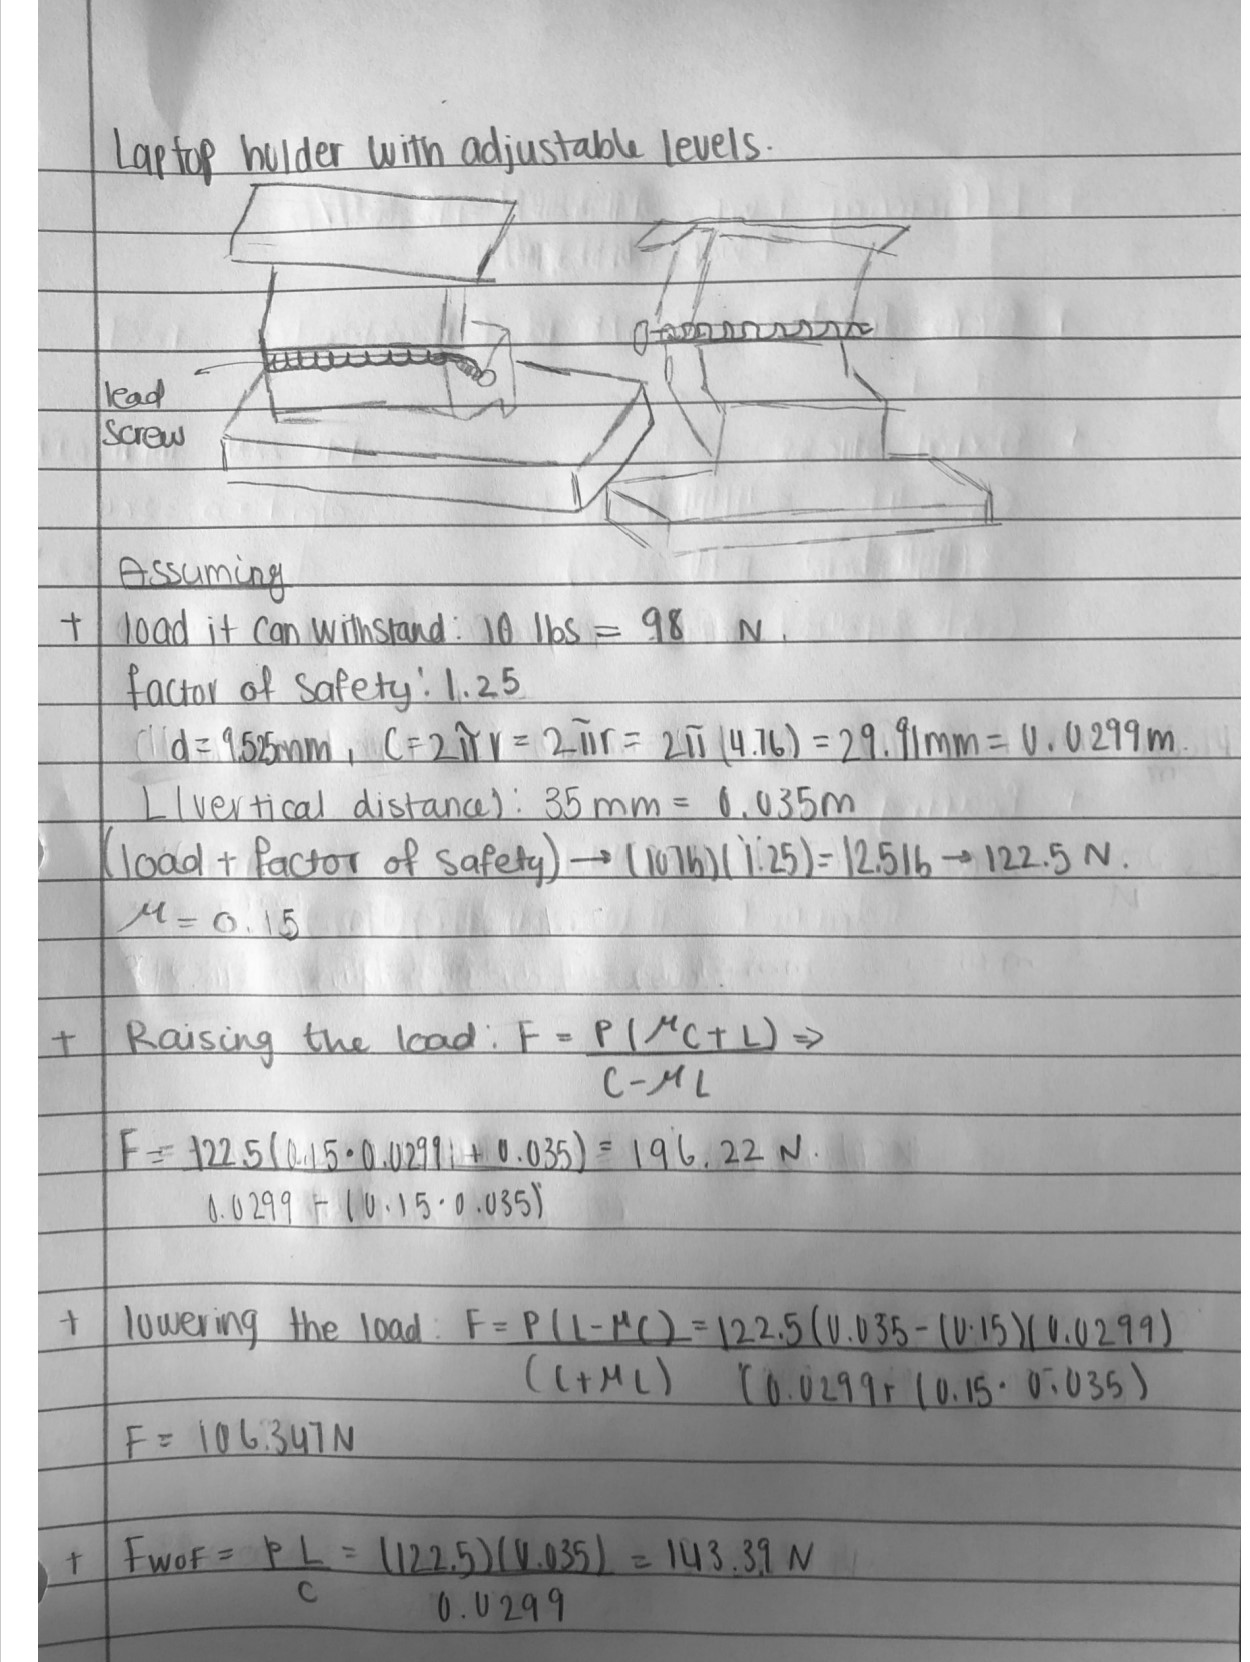 Laptop holder with adjustable levels.
lead
screw
Assuming
+ load it can withstand: 10 lbs = 98 N.
factor of safety: 1.25
d = 9.525mm, C = 2πr = 2πr = 2π (4.76) = 29.91mm = 0.0299m
L (vertical distance): 35 mm = 0.035m
(load + factor of safety) → (10 lb)(1.25) = 12.5 lb → 122.5 N.
μ = 0.15
+ Raising the load: F = P(μC + L) ⇒
C - μL
F = 122.5(0.15 · 0.0299 + 0.035) = 196.22 N.
0.0299 - (0.15 · 0.035)
+ lowering the load: F = P(L - μC) = 122.5(0.035 - (0.15)(0.0299)
(C + μL) (0.0299 + (0.15 · 0.035)
F = 106.347N
+ FWOF = PL = (122.5)(0.035) = 143.39 N
C 0.0299